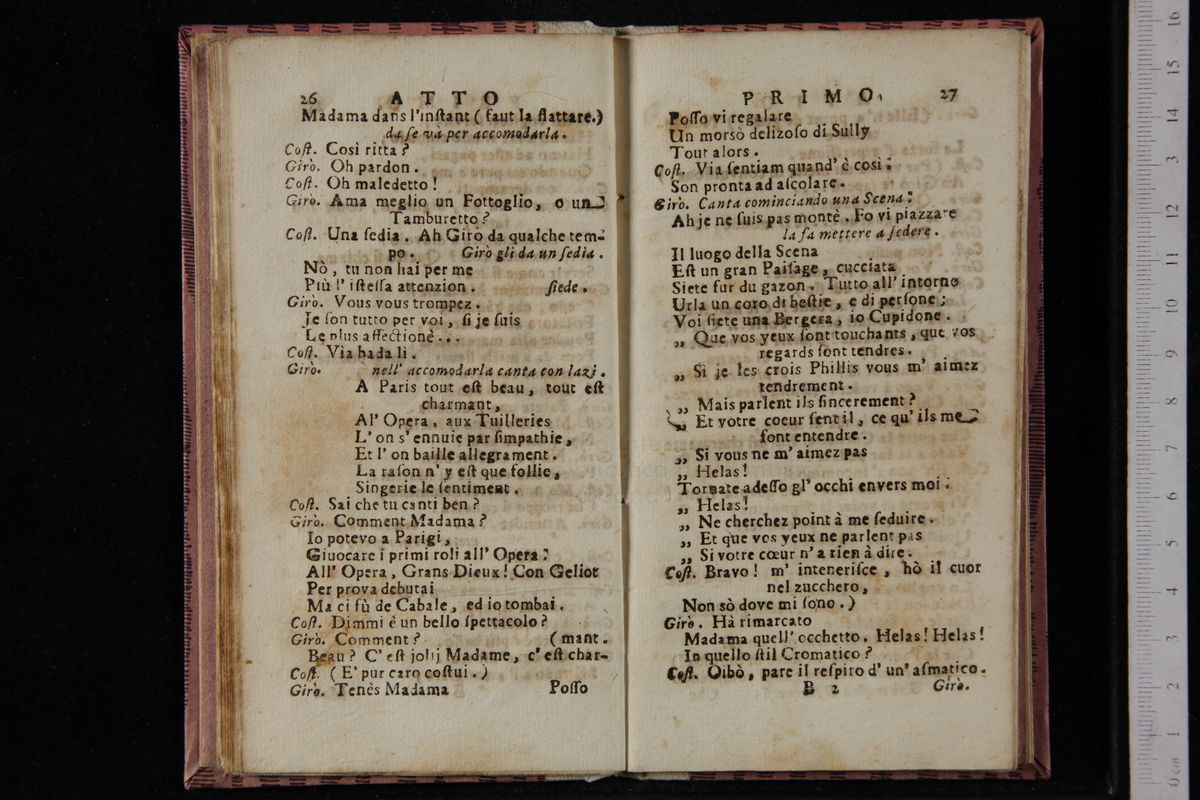 26 ATTO
Madama dans l'inſtant ( faut la flattare.)
da ſe và per accomodarla.
Coſt. Così ritta?
Girò. Oh pardon.
Coſt. Oh maledetto!
Girò. Ama meglio un Fottoglio, o un
Tamburetto?
Coſt. Una ſedia. Ah Girò da qualche tem-
po. Girò gli da un ſedia.
Nò, tu non hai per me
Più l' iſteſſa attenzion. ſiede.
Girò. Vous vous trompez.
Je ſon tutto per voi, ſi je ſuis
Le plus affectionè...
Coſt. Via bada lì.
Girò. nell' accomodarla canta con lazj.
A Paris tout eſt beau, tout eſt
charmant,
Al' Opera, aux Tuilleries
L' on s' ennuie par ſimpathie,
Et l' on baille allegrament.
La raſon n' y eſt que follie,
Singerie le ſentiment.
Coſt. Sai che tu canti ben?
Girò. Comment Madama?
Io potevo a Parigi,
Giuocare i primi roli all' Opera:
All' Opera, Grans Dieux! Con Geliot
Per prova debutai
Ma ci fù de Cabale, ed io tombai.
Coſt. Dimmi è un bello ſpettacolo?
Girò. Comment? (mant.
Beau? C' eſt jolij Madame, c' eſt char-
Coſt. ( E' pur caro coſtui.)
Girò. Tenès Madama Poſſo
PRIMO, 27
Poſſo vi regalare
Un morsò delizoſo di Sully
Tout alors.
Coſt. Via ſentiam quand' è così:
Son pronta ad aſcolare.
Girò. Canta cominciando una Scena:
Ah je ne ſuis pas montè. Fo vi piazzare
la fa mettere a ſedere.
Il luogo della Scena
Eſt un gran Paiſage, cucciata
Siete ſur du gazon. Tutto all' intorno
Urla un coro di beſtie, e di perſone;
Voi ſiete una Bergera, io Cupidone.
„ Que vos yeux ſont touchants, que vos
regards ſont tendres.
„ Si je les crois Phillis vous m' aimez
tendrement.
„ Mais parlent ils ſincerement?
„ Et votre coeur ſent il, ce qu' ils me
font entendre.
„ Si vous ne m' aimez pas
„ Helas!
Tornate adeſſo gl' occhi envers moi.
„ Helas!
„ Ne cherchez point à me ſeduire.
„ Et que vos yeux ne parlent pas
„ Si votre cœur n' a rien à dire.
Coſt. Bravo! m' inteneriſce, hò il cuor
nel zucchero,
Non sò dove mi ſono.)
Girò. Hà rimarcato
Madama quell' occhetto. Helas! Helas!
In quello ſtil Cromatico?
Coſt. Oibò, pare il reſpiro d' un' aſmatico.
B 2 Girò.
16
15
14
13
12
11
10
9
8
7
6
5
4
3
2
1
0 cm